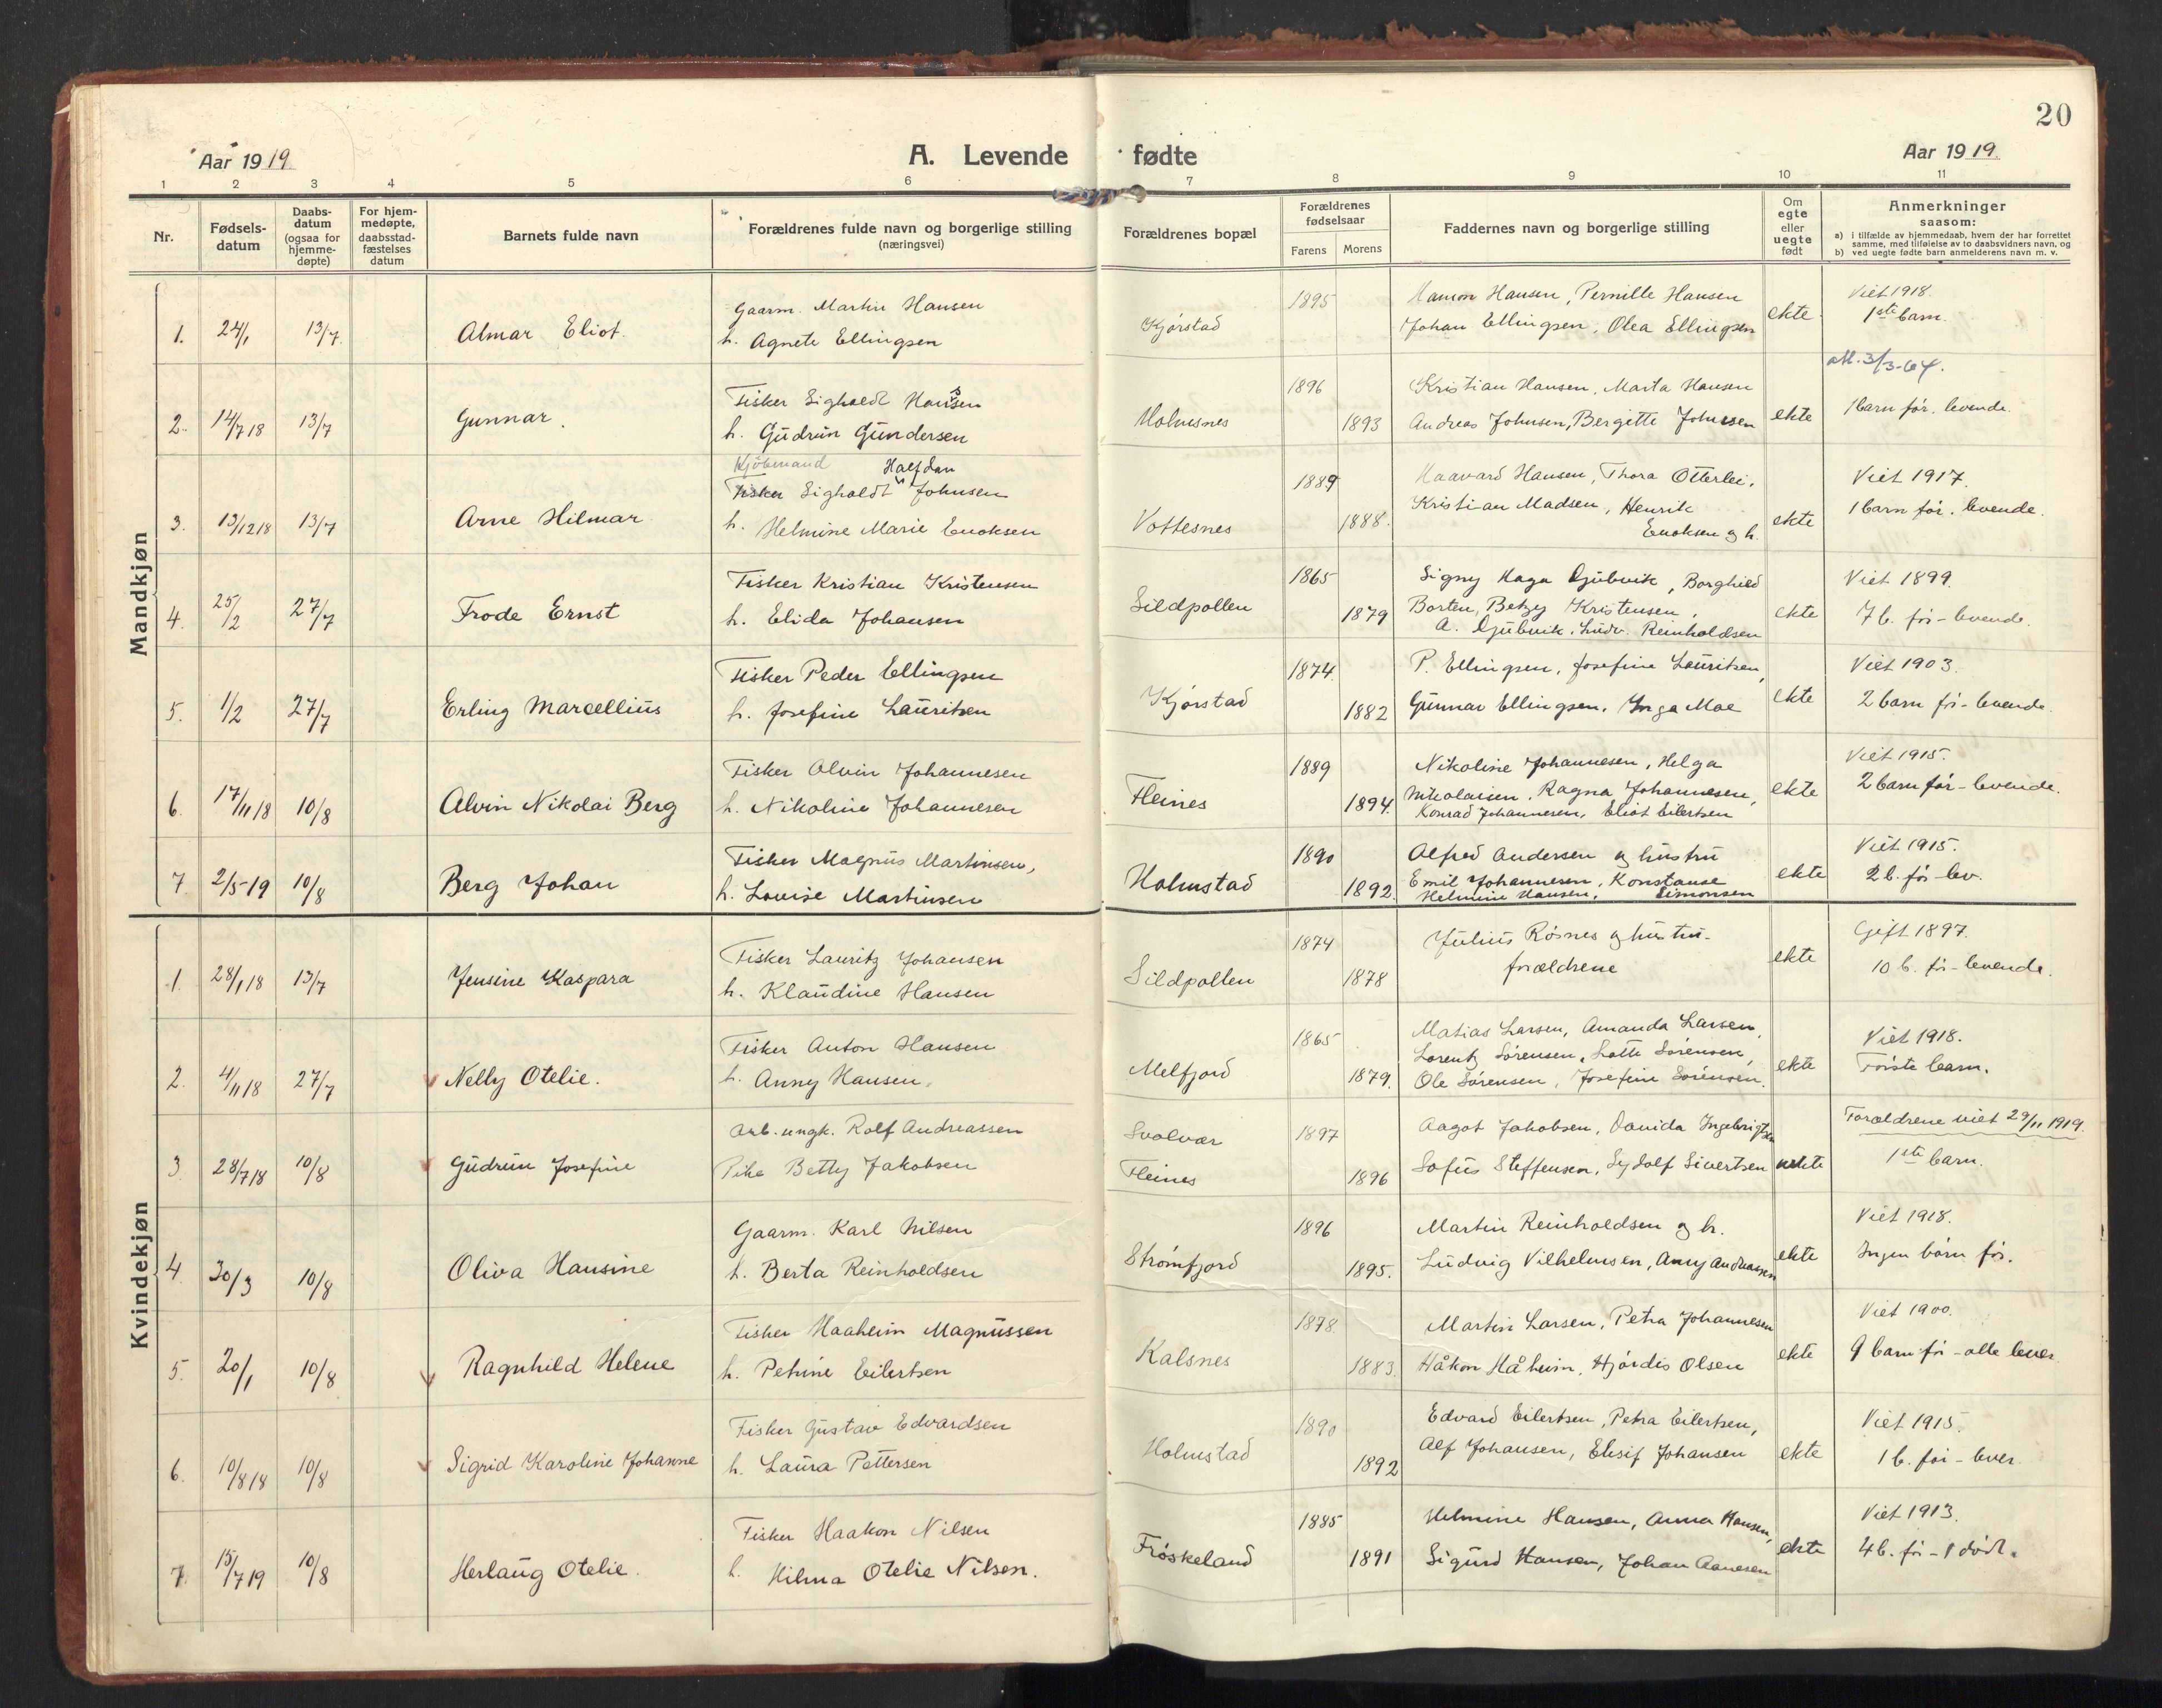 20
Aar 1919.
A. Levende fødte
Aar 1919.
1 2 3 4 5 6 7 8 9 10 11
Nr.
Fødsels-
datum
Daabs-
datum
(ogsaa for
hjemme-
døpte)
For hjem-
medøpte,
daabsstad-
fæstelses
datum
Barnets fulde navn
Forældrenes fulde navn og borgerlige stilling
(næringsvei)
Forældrenes bopæl
Forældrenes
fødselsaar
Farens Morens
Faddernes navn og borgerlige stilling
Om
egte
eller
uegte
født
Anmerkninger
saasom:
a) i tilfælde av hjemmedaab, hvem der har forrettet
samme, med tilføielse av to daabsvidners navn, og
b) ved uegte fødte barn anmelderens navn m. v.
Mandkjøn
1. 24/1 13/7 Almar Eliot.
Gaarm. Martin Hansen
h. Agnete Ellingsen
Kjørstad
1895
Hansen, Pernille Hansen
Johan Ellingsen, Olea Ellingsen
ekte
Viet 1918.
1ste barn.
att. 3/3-64.
2. 14/7 18 13/7 Gunnar.
Fisker Sigholdt Hansen
h. Gudrun Gundersen
Holmsnes
1896
1893
Kristian Hansen, Marta Hansen
Andreas Johnsen, Bergitte Johnsen
ekte
1 barn før. levende.
3. 13/12 18 13/7 Arne Hilmar
Kjøbmand Halfdan
Fisker Sigholdt Johnsen
h. Helmine Marie Enoksen
Vottesnes
1889
1888.
Haavard Hansen, Thora Otterlei,
Kristian Madsen, Henrik
Enoksen og h.
ekte
Viet 1917.
1 barn før. levende.
4. 25/2 27/7 Frode Ernst
Fisker Kristian Kristensen
h. Elida Johansen
Sildpollen
1865
1879
Signy Haga Djubvik, Borghild
Borten, Betzy Kristensen,
A. Djubvik, Ludv. Reinholdsen
ekte
Viet 1899.
7 b. før - levende.
5. 1/2 27/7 Erling Marcellius
Fisker Peder Ellingsen
h. Josefine Lauritsen
Kjørstad
1874.
1882
P. Ellingsen, Josefine Lauritsen,
Gunnar Ellingsen, Inga Moe
ekte
Viet 1903.
2 barn før - levende.
6. 17/11 18 10/8 Alvin Nikolai Berg
Fisker Alvin Johannesen
h. Nikoline Johannesen
Fleines
1889
1894.
Nikoline Johannesen, Helga
Nikolaisen, Ragna Johannesen,
Konrad Johannesen, Eliot Eilertsen
ekte
Viet 1915.
2 barn før - levende.
7 2/5-19 10/8 Berg Johan
Fisker Magnus Martinsen,
h. Lovise Martinsen
Holmstad
1890
1892.
Alfred Andersen og hustru
Emil Johannesen, Konstanse
Helmine Hansen, Simonsen
ekte
Viet 1915.
2 b. før lev.
Kvindekjøn
1. 28/1 18 13/7 Jensine Kaspara
Fisker Lauritz Johansen
h. Klaudine Hansen
Sildpollen
1874
1878
Julius Røsnes og hustru.
forældrene
ekte
Gift 1897.
10 b. før - levende.
2. 4/11 18 27/7 Nelly Otelie.
Fisker Anton Hansen
h. Anny Hansen.
Melfjord
1865
1879.
Matias Larsen, Amanda Larsen,
Lorentz Sørensen, Lotte Sørensen,
Ole Sørensen, Josefine Sørensen.
ekte
Viet 1918.
Første barn.
3 28/7 18 10/8 Gudrun Josefine
Arb. ungk. Rolf Andreassen
Pike Betty Jakobsen
Svolvær
Fleines
1897
1896
Aagot Jakobsen, Davida Ingebrigtsen
Sofus Steffensen, Sydolf Sivertsen
uekte
Forældrene viet 29/11 1919.
1ste barn.
4 30/3 10/8 Oliva Hansine
Gaarm. Karl Nilsen
h. Berta Reinholdsen
Strømfjord
1896
1895.
Martin Reinholdsen og h.
Ludvig Vilhelmsen, Anny Andreassen
ekte
Viet 1918.
Ingen børn før.
5. 20/1 10/8 Ragnhild Helene
Fisker Haaheim Magnussen
h. Petrine Eilertsen
Kalsnes
1878.
1883.
Martin Larsen, Petra Johannesen
Håkon Håheim, Hjørdis Olsen
ekte
Viet 1900.
9 barn før - alle lever
6. 10/8 18 10/8 Sigrid Karoline Johanne
Fisker Gustav Edvardsen
h. Laura Pettersen
Holmstad
1890
1892
Edvard Eilertsen, Petra Eilertsen,
Alf Johansen, Elisif Johansen
ekte
Viet 1915.
1 b. før - lever.
7. 15/7 19 10/8 Herlaug Otelie.
Fisker Haakon Nilsen
h. Hilma Otelie Nilsen.
Frøskeland
1885
1891
Helmine Hansen, Anna Hansen,
Sigurd Hansen, Johan Aanesen
ekte
Viet 1913.
4 b. før - 1 død.